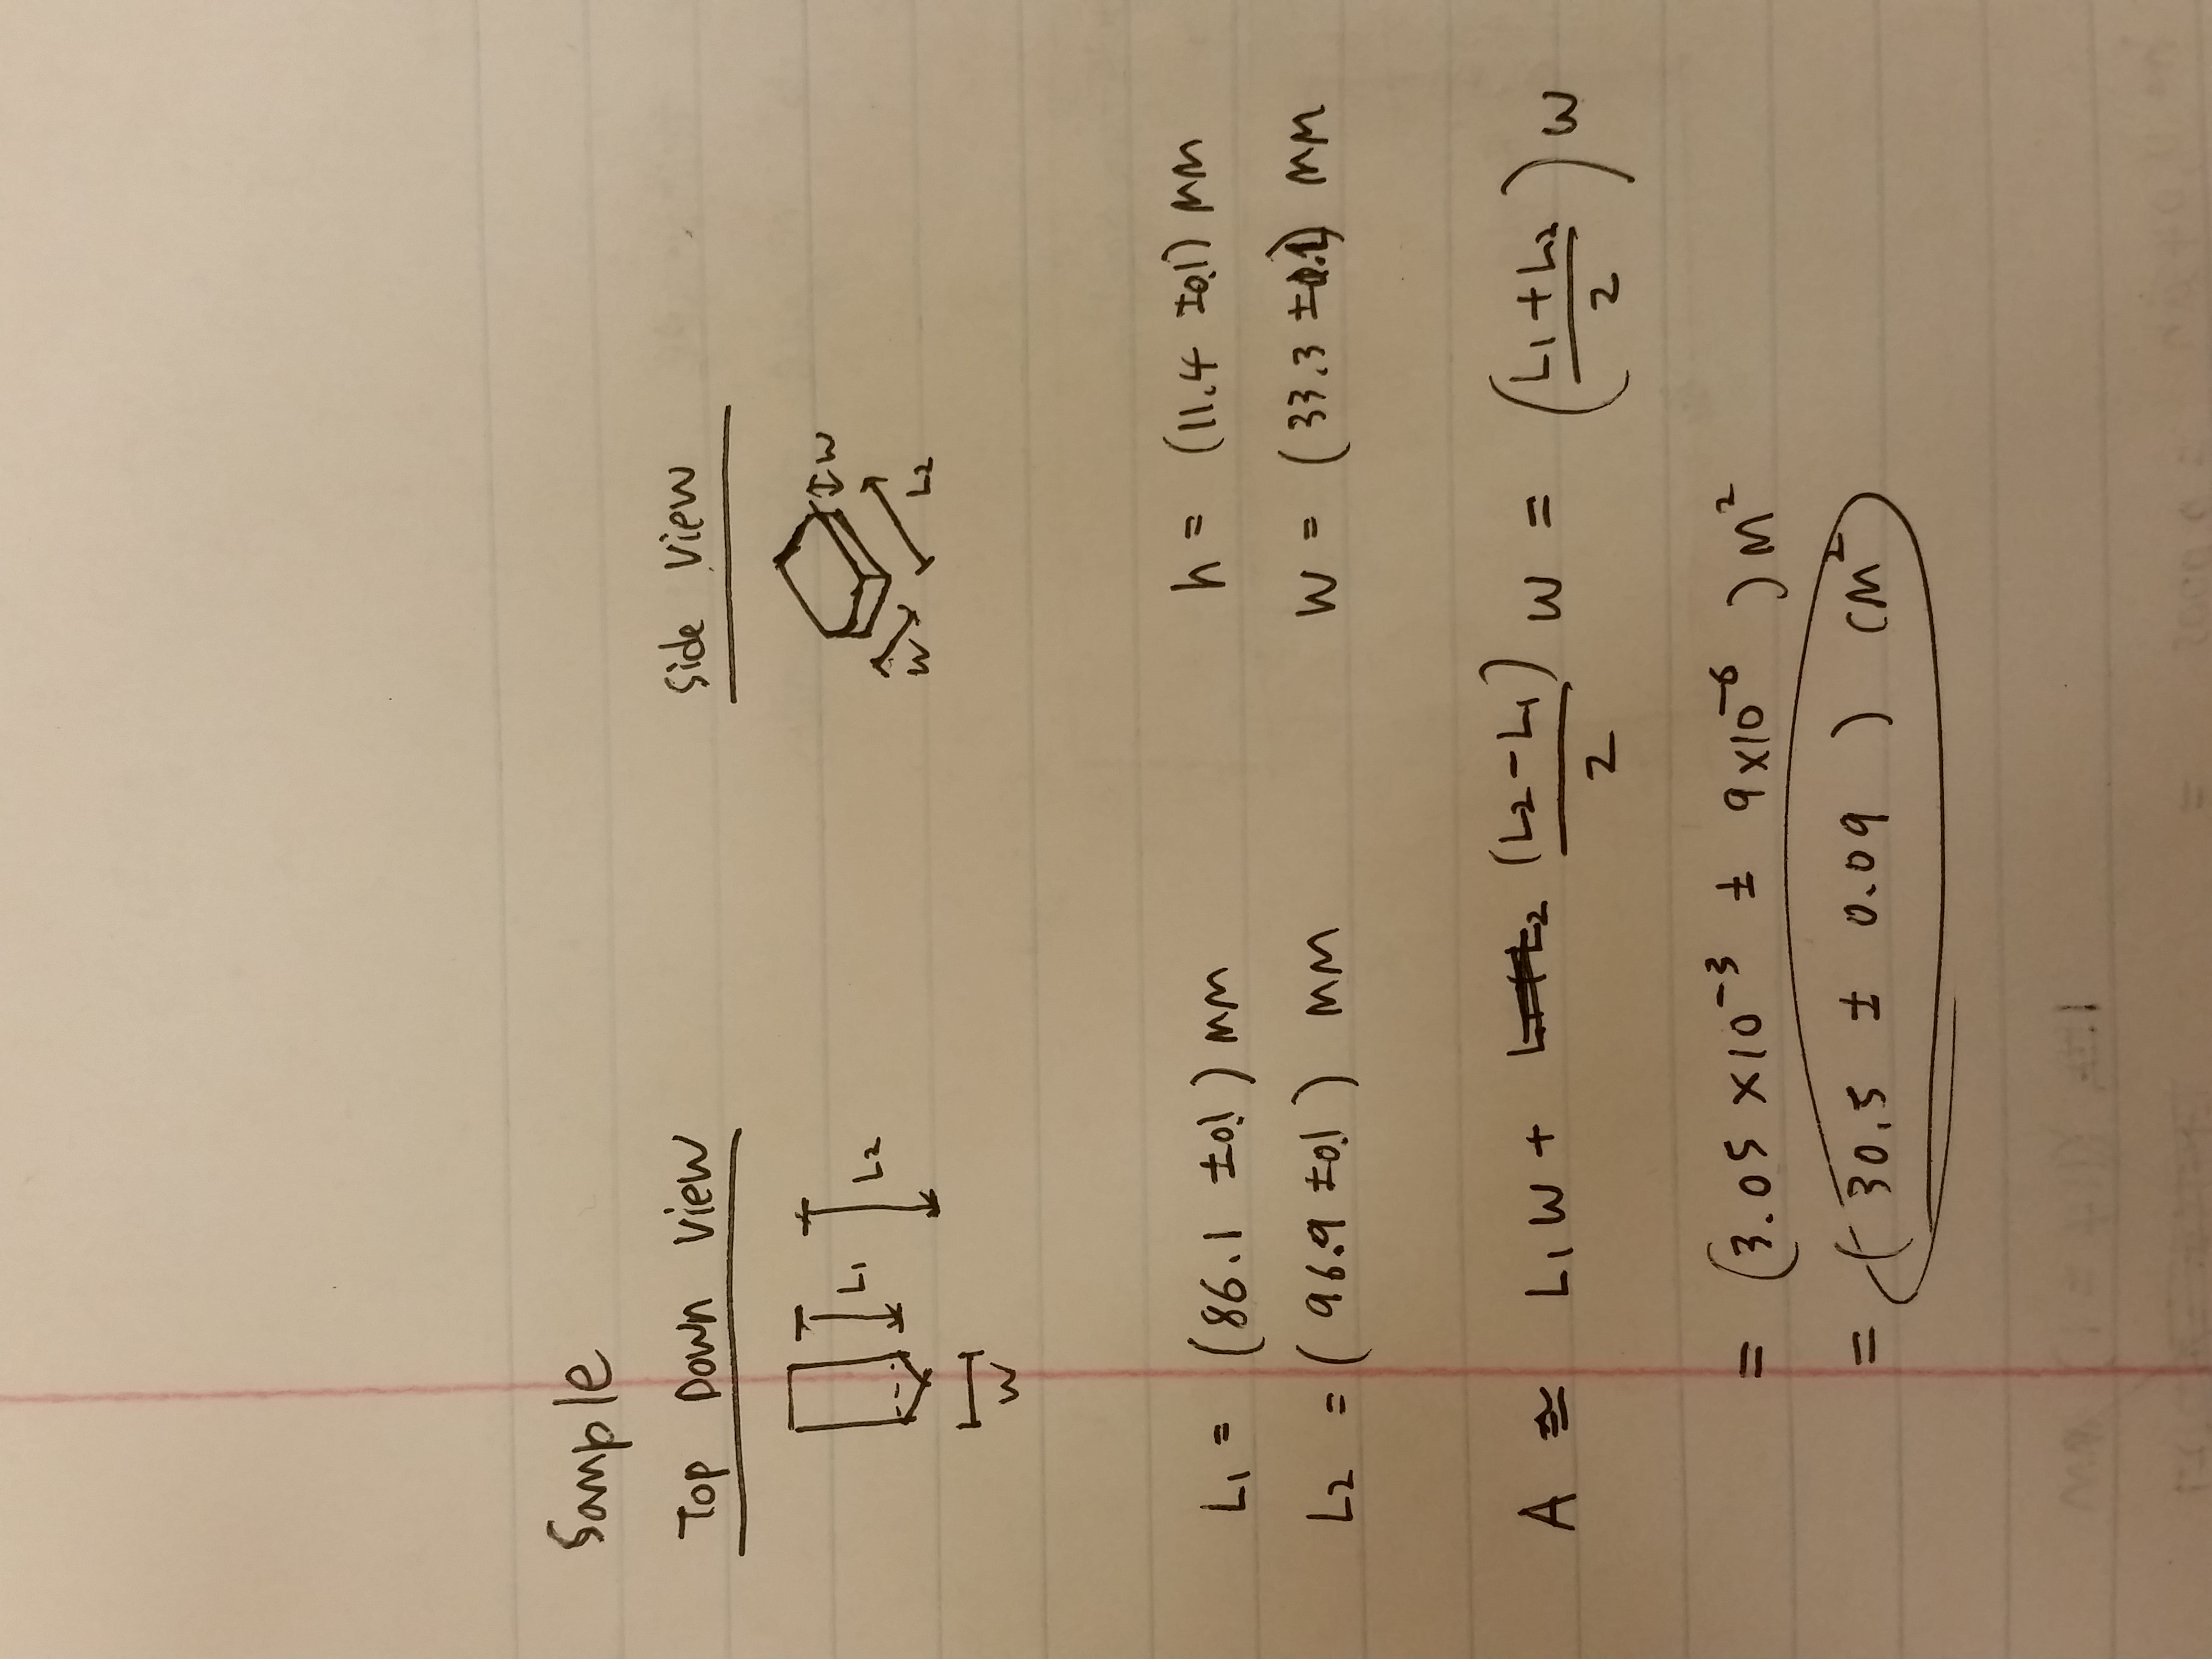 Sample
Top Down View
Side View
L1
L2
W
W
W
L2
L1 = (86.1 ±0.1) mm
h = (11.4 ±0.1) mm
L2 = (96.9 ±0.1) mm
W = (33.3 ±0.1) mm
A ≅ L1 W + (L2-L1)/2 W = (L1+L2/2) W
= (3.05 x10^-3 ± 9x10^-6) m²
= (30.5 ± 0.09) cm²